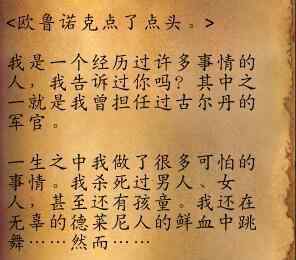 <欧鲁诺克点了点头。>
我是一个经历过许多事情的
人，我告诉过你吗？其中之
一就是我曾担任过古尔丹的
军官。
一生之中我做了很多可怕的
事情。我杀死过男人、女
人，甚至还有孩童。我还在
无辜的德莱尼人的鲜血中跳
舞……然而……